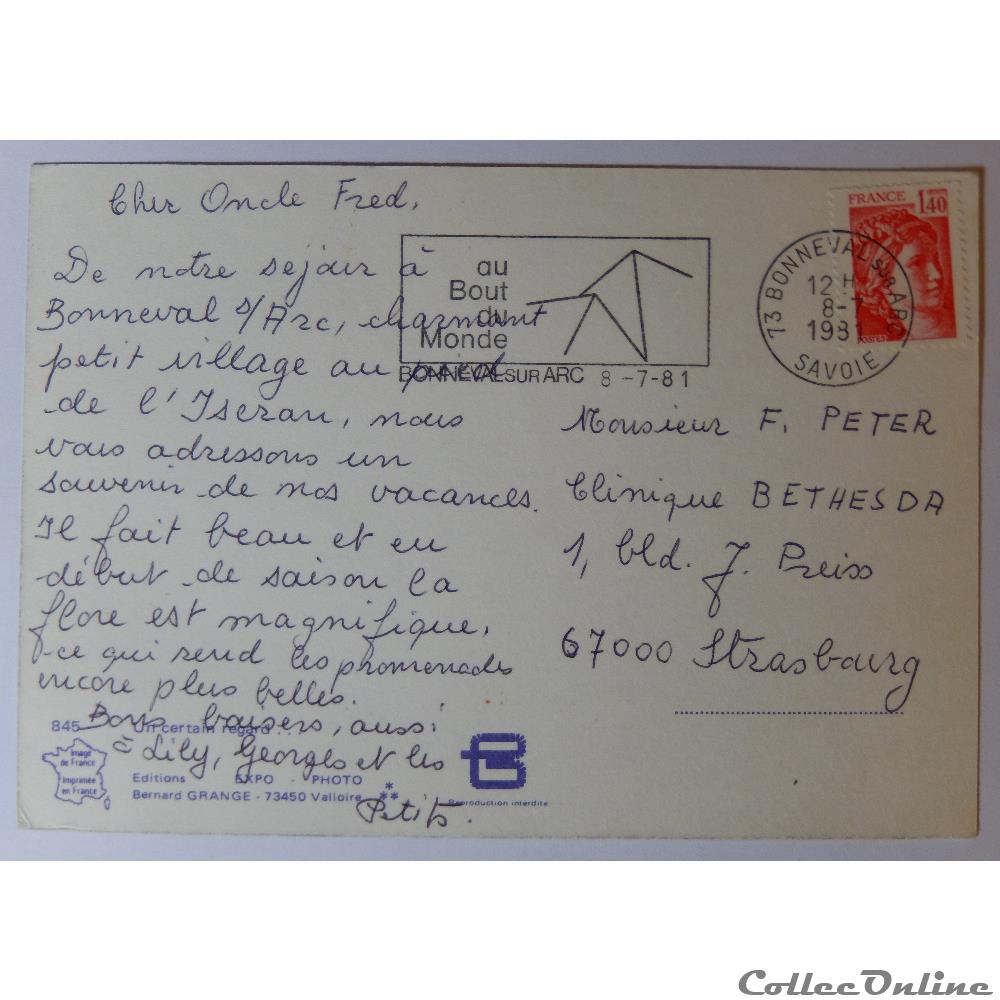 Cher Oncle Fred,
De notre séjour à
Bonneval s/Arc, charmant
petit village au pied
de l'Iseran, nous
vous adressons un
souvenir de nos vacances.
Il fait beau et en
début de saison la
flore est magnifique,
ce qui rend les promenades
encore plus belles.
Bons baisers, aussi
à Lily, Georges et les
Petits.
au
Bout
du
Monde
BONNEVAL SUR ARC 8-7-81
FRANCE
1,40
POSTES
73 BONNEVAL SUR ARC
12 H
8-7
1981
SAVOIE
Monsieur F. PETER
Clinique BETHESDA
1, bld. J. Preiss
67000 Strasbourg
845 Un certain regard...
Image
de France
Imprimée
en France
Editions EXPO PHOTO
Bernard GRANGE - 73450 Valloire
Reproduction interdite
CollecOnline